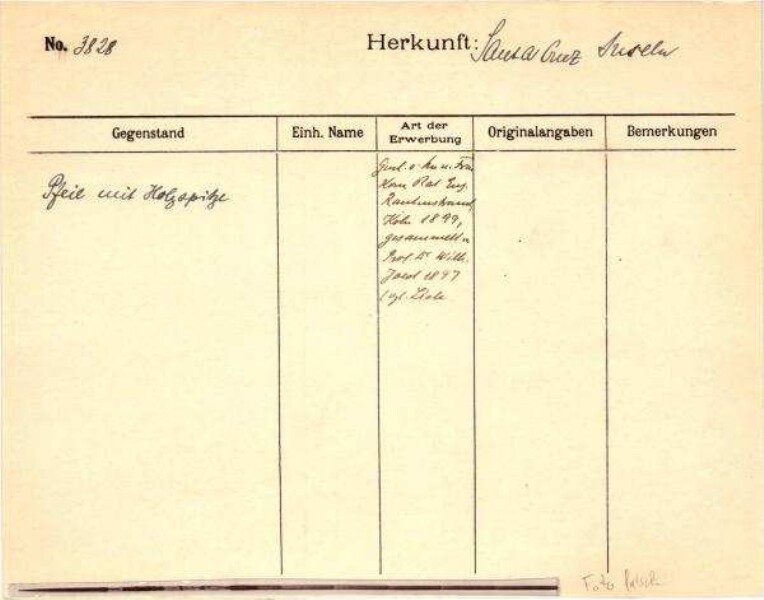 No. 3828
Herkunft: Santa Cruz Inseln
Gegenstand
Einh. Name
Art der
Erwerbung
Originalangaben
Bemerkungen
Pfeil mit Holzspitze
Gesch. v. Hn u. Frau
Kom Rat Eug.
Rautenstrauch,
Köln 1899,
gesammelt v.
Prof. Dr Wilh.
Joest 1897
Foto falsch